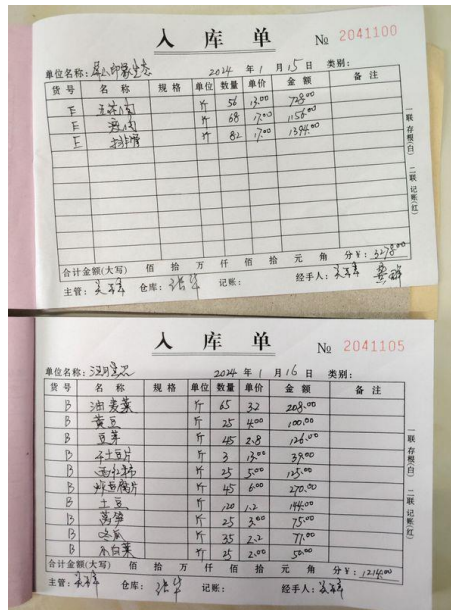 入 库 单 № 2041100
单位名称： 2024 年 1 月 15 日 类别：
货号 名 称 规 格 单位 数量 单价 金 额 备 注
E 斤 56 13.00 728.00
E 瘦肉 斤 68 17.00 1156.00
E 排骨 斤 82 17.00 1394.00
合计金额(大写) 佰 拾 万 仟 佰 拾 元 角 分 ¥: 3278.00
主管： 仓库： 记账： 经手人：
一联 存根(白) 二联 记账(红)
入 库 单 № 2041105
单位名称： 2024 年 1 月 16 日 类别：
货 号 名 称 规 格 单位 数量 单价 金 额 备 注
B 油麦菜 斤 65 3.2 208.00
B 黄豆 斤 25 4.00 100.00
B 豆芽 斤 45 2.8 126.00
B 干土豆片 斤 3 13.00 39.00
B 西红柿 斤 25 5.00 125.00
B 炸豆腐片 斤 45 6.00 270.00
B 土豆 斤 120 1.2 144.00
B 莴笋 斤 25 3.00 75.00
B 冬瓜 斤 35 2.2 77.00
B 小白菜 斤 25 2.00 50.00
合计金额(大写) 佰 拾 万 仟 佰 拾 元 角 分 ¥: 1214.00
主管： 仓库： 记账： 经手人：
一联 存根(白) 二联 记账(红)